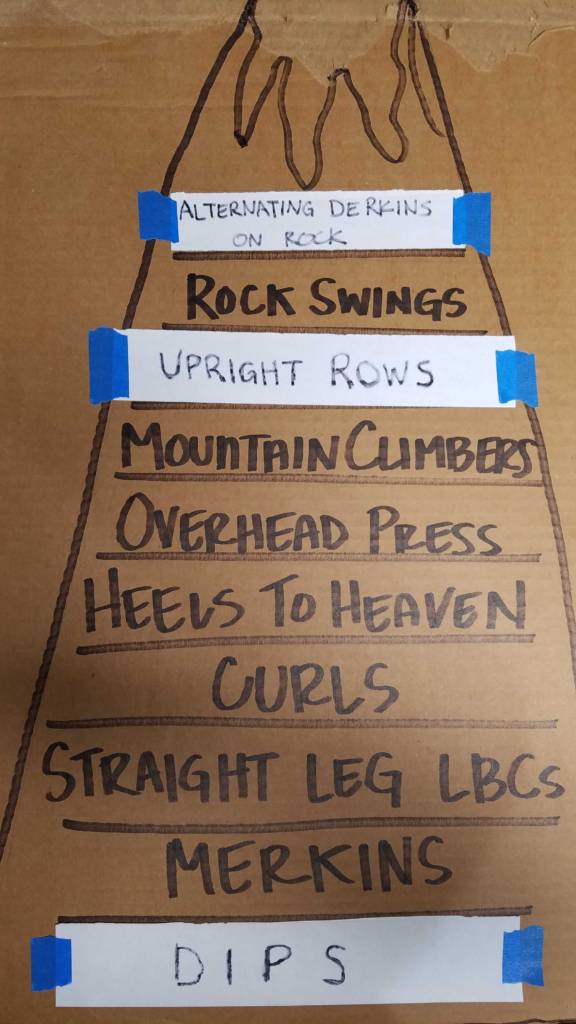 ALTERNATING DERKINS
ON ROCK
ROCK SWINGS
UPRIGHT ROWS
MOUNTAIN CLIMBERS
OVERHEAD PRESS
HEELS TO HEAVEN
CURLS
STRAIGHT LEG LBCs
MERKINS
DIPS